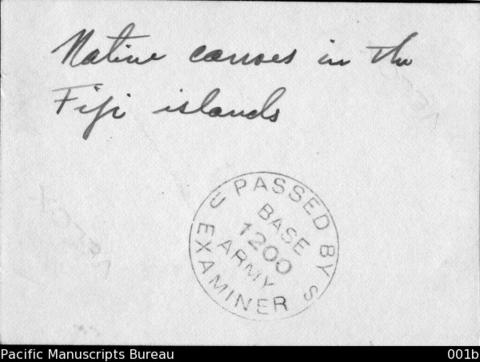 Native canoes in the
Fiji islands
U PASSED BY S
BASE
1200
ARMY
EXAMINER
VELOX
VELOX
Pacific Manuscripts Bureau
001b